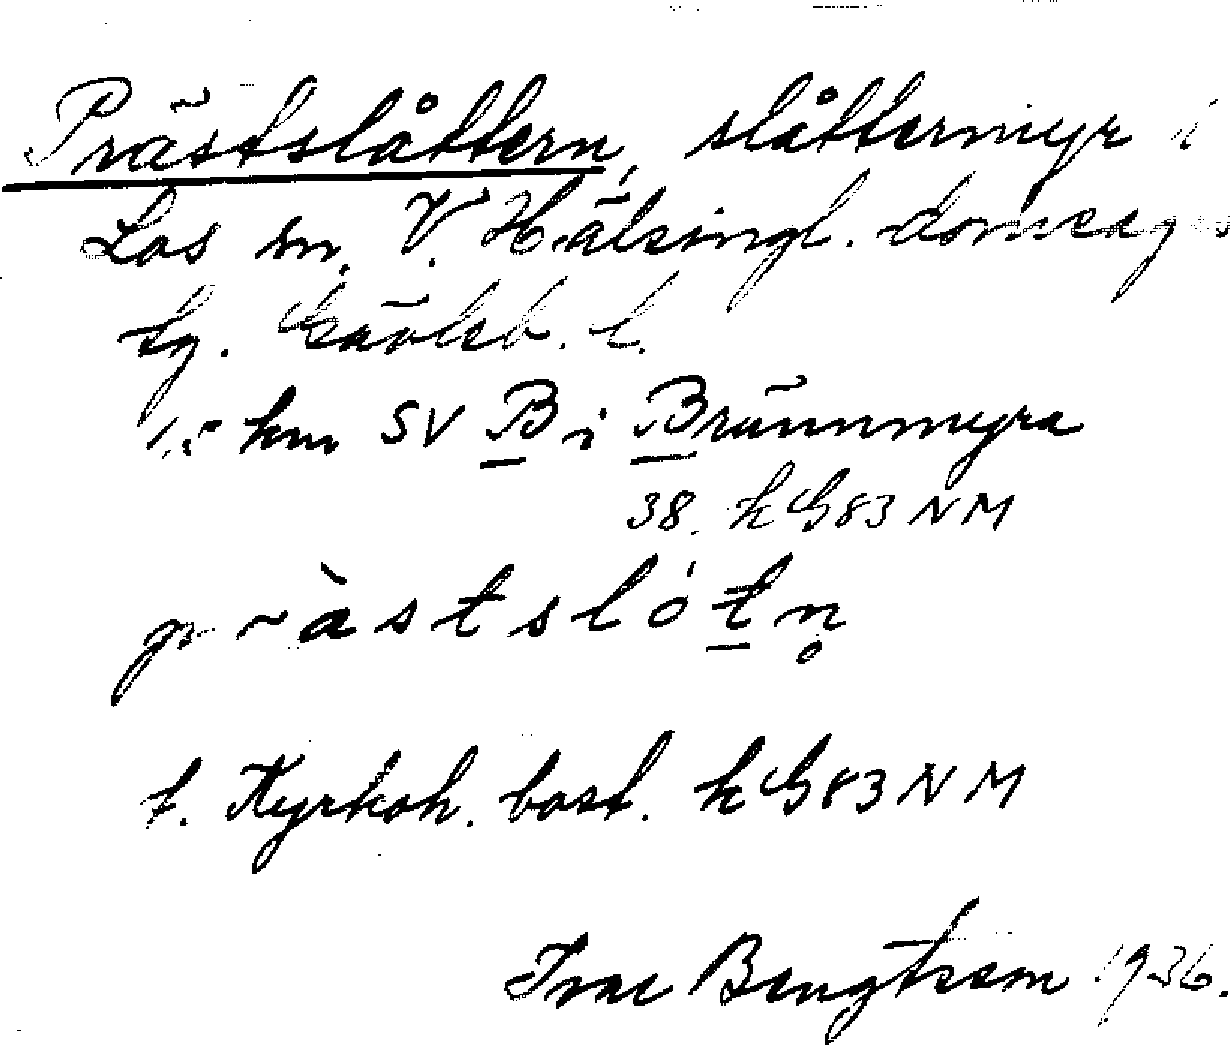 Prästslåttern, slåttermyr i
Los sn. V. Hälsingl. domsagas
tg. Gävleb. l.
1,5 km SV B i Brünnmyra
38. kG83NM
prästslótn̥
t. Kyrkoh. bost. kG83NM
Ivar Bengtsson 1936.